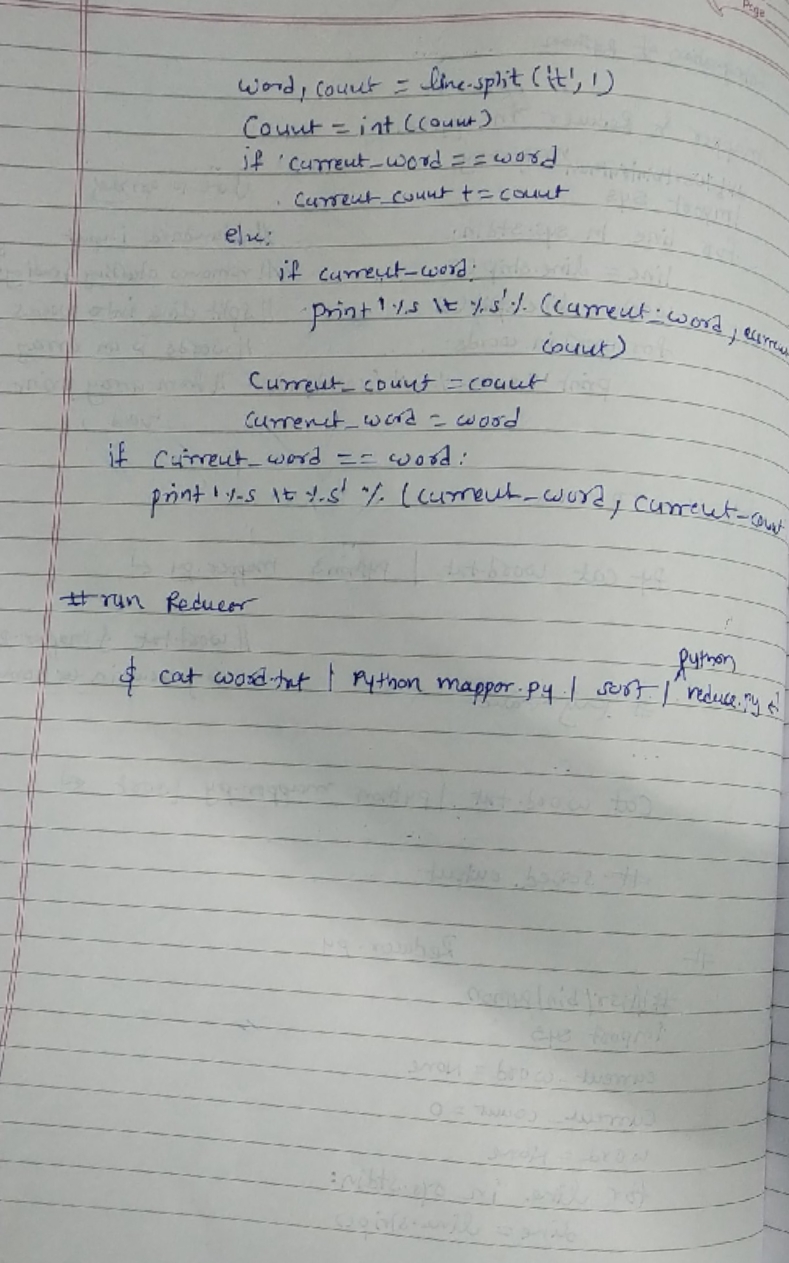 Page
word, count = line.split('\t', 1)
Count = int (count)
if current_word == word
current_count += count
else:
if current_word:
print '%s \t %s' % (current_word, curren
count)
Current_count = count
Currenct_word = word
if Current_word == word:
print '%s \t %s' % (current_word, current_count
# run Reducer
Python
$ cat word.txt | Python mappor.py | sort | reduce.py